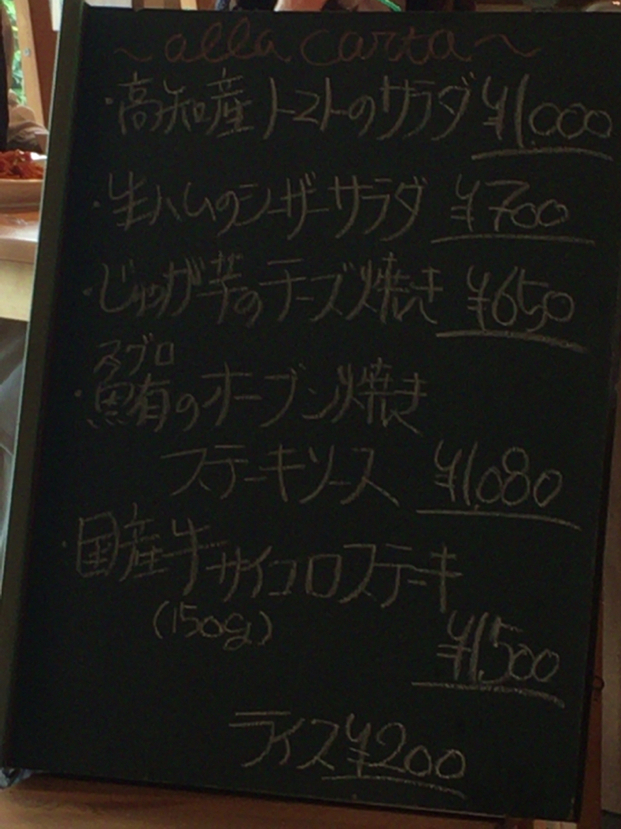 ~alla carta~
・高知産トマトのサラダ ¥1,000
・生ハムのシーザーサラダ ¥700
・じゃが芋のチーズ焼き ¥650
マグロ
・鮪のオーブン焼き
ステーキソース ¥1,080
・国産牛サイコロステーキ
(150g)
¥1,500
ライス ¥200